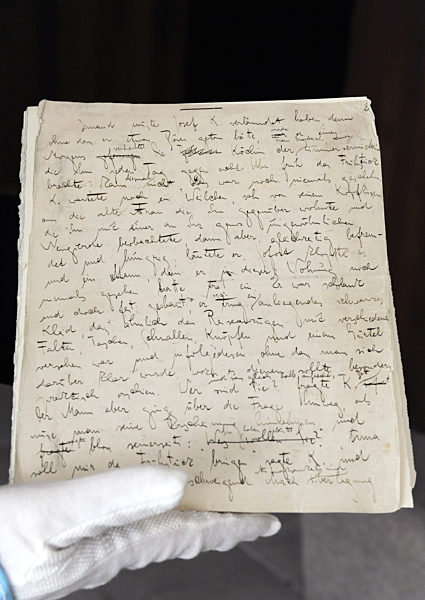 8
Jemand mußte Josef K. verläumdet haben denn
ohne daß er etwas Böses getan hätte wurde er eines
Morgens verhaftet Die Köchin der Zimmervermieterin
die ihm jeden Tag gegen acht Uhr früh das Frühstück
brachte kam diesmal nicht Das war noch niemals geschehn
K. wartete noch ein Weilchen, sah von seinem Kopfkissen
aus die alte Frau die ihm gegenüber wohnte und
die ihn mit einer an ihr ganz ungewöhnlichen
Neugierde beobachtete dann aber, gleichzeitig befrem-
det und hungrig läutete er Sofort klopfte es
und ein Mann, den er in dieser Wohnung noch
niemals gesehen hatte trat ein Er war schlank
und doch fest gebaut, er trug ein anliegendes schwarzes
Kleid das ähnlich den Reiseanzügen mit verschiedenen
Falten, Taschen, Schnallen, Knöpfen und einem Gürtel
versehen war und infolgedessen, ohne daß man sich
darüber klar wurde wozu es dienen sollte besonders
praktisch erschien. Wer sind Sie? fragte K.
und saß gleich halb aufrecht
Der Mann aber ging über die Frage hinweg als
müsse man seine Erscheinung hinnehmen und
bloß seinerseits: Sie haben geläutet? Anna
soll mir das Frühstück bringen sagte K. und
stillschweigend durch Überlegung